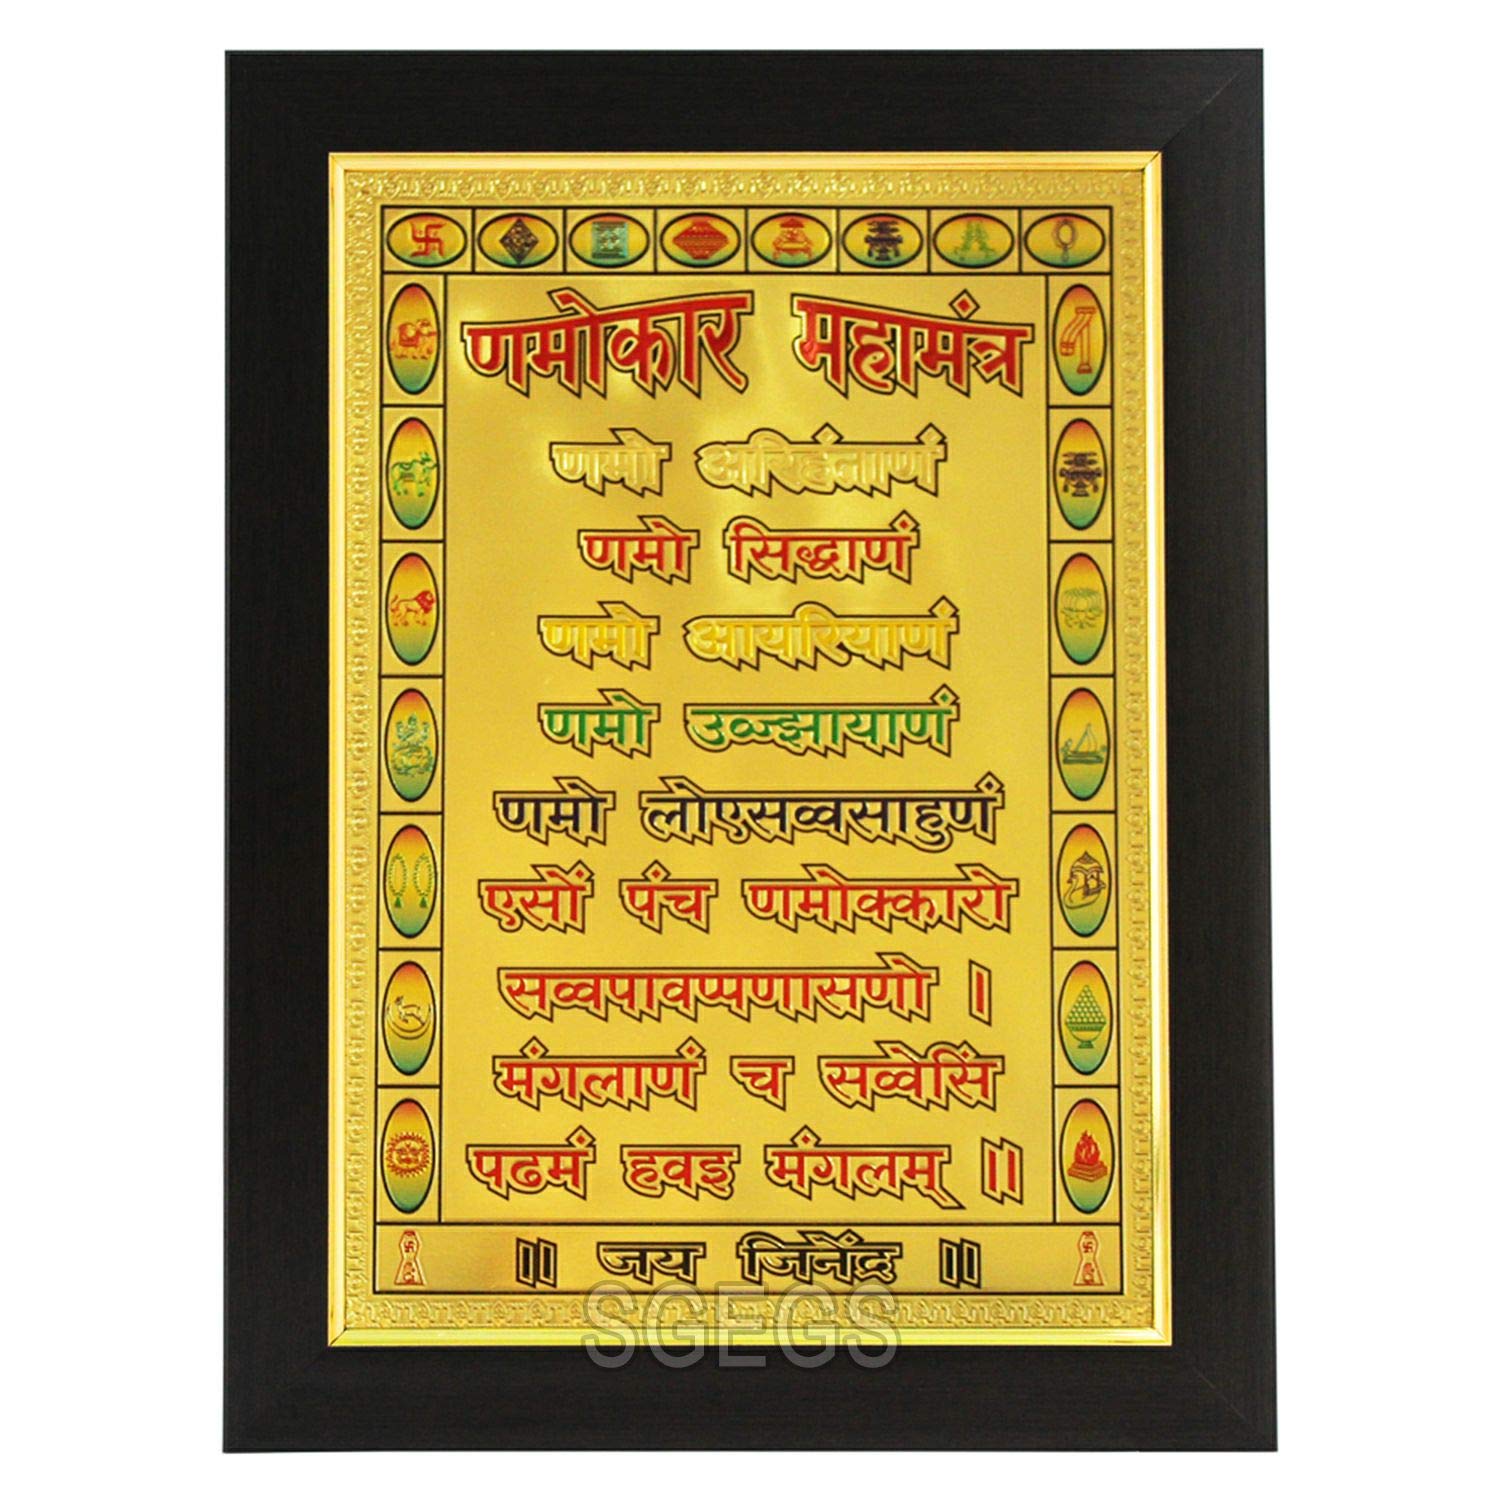 णमोकार महामंत्र
णमो अरिहंताणं
णमो सिद्धाणं
णमो आयरियाणं
णमो उळ्झायाणं
णमो लोएसव्वसाहुणं
एसों पंच णमोक्कारो
सव्वपावप्पणासणो ।
मंगलाणं च सव्वेसिं
पढमं हवइ मंगलम् ।।
।। जय जिनेंद्र ।।
SGEGS